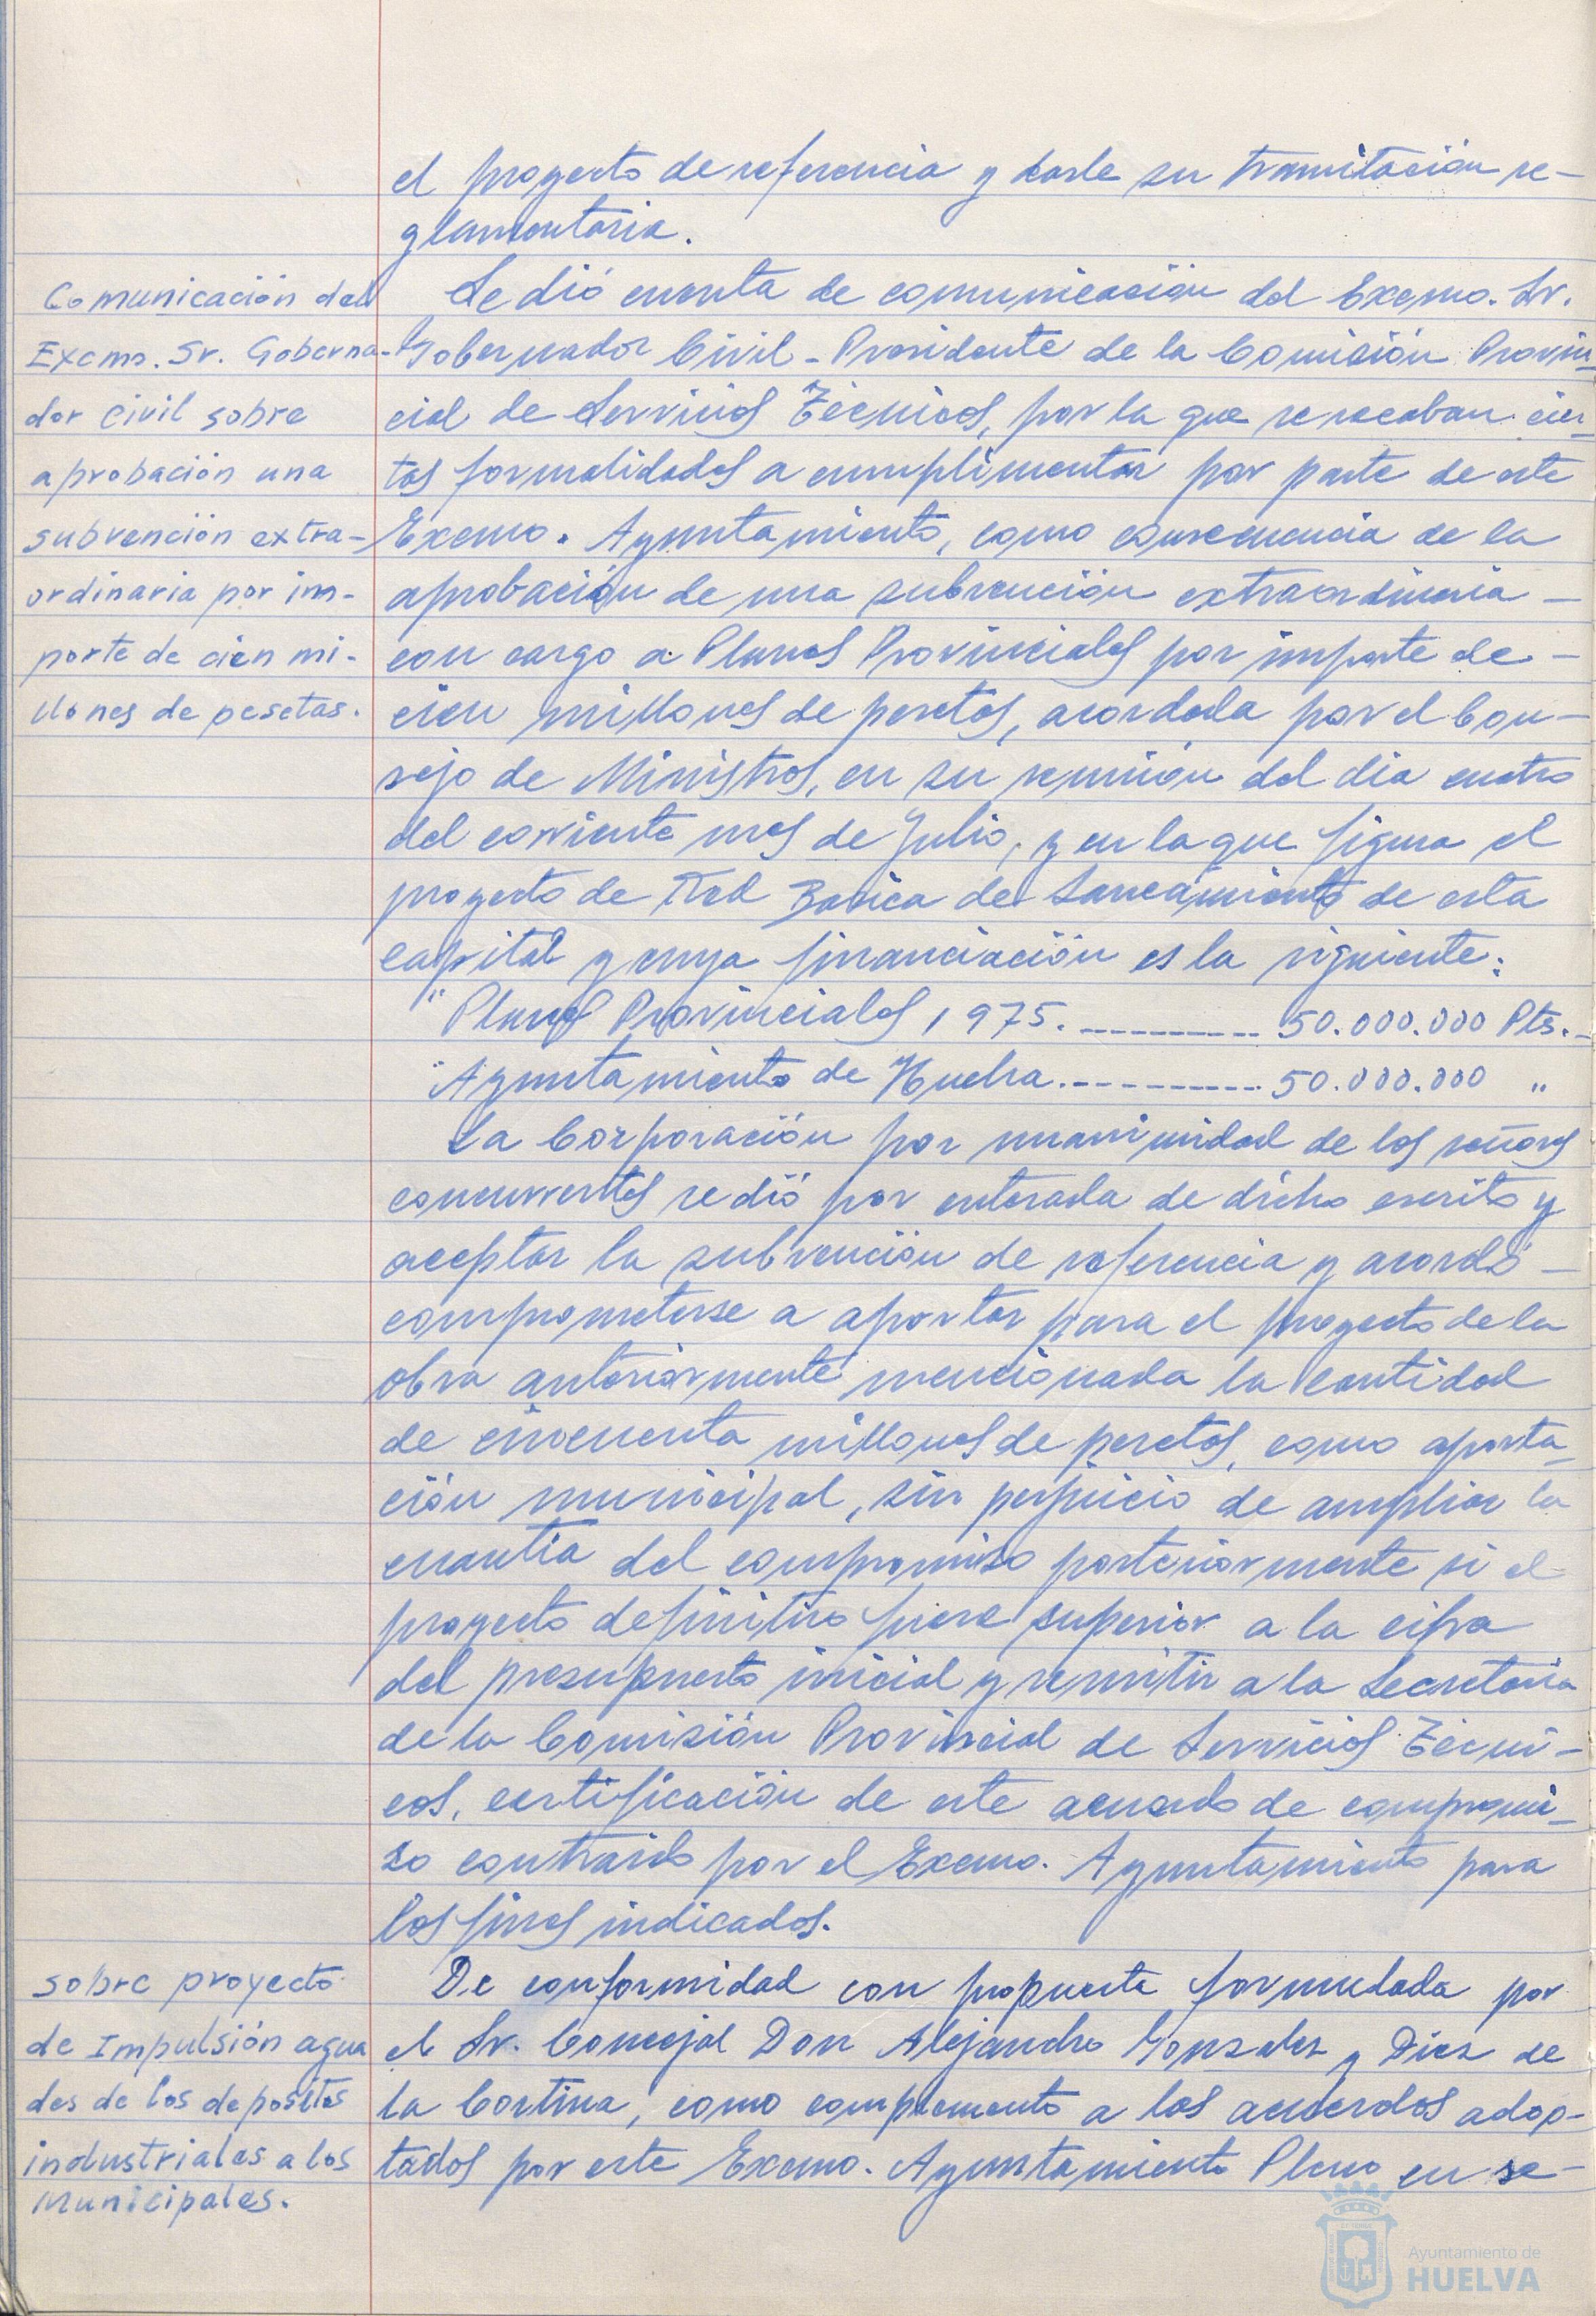 el proyecto de referencia y darle su tramitación re-
glamentaria.
Comunicación del
Excmo. Sr. Goberna-
dor Civil sobre
aprobación una
subvención extra-
ordinaria por im-
porte de cien mi-
llones de pesetas.
Se dió cuenta de comunicación del Excmo. Sr.
Gobernador Civil - Presidente de la Comisión Provin-
cial de Servicios Técnicos, por la que se recaban cier-
tas formalidades a cumplimentar por parte de este
Excmo. Ayuntamiento, como consecuencia de la
aprobación de una subvención extraordinaria -
con cargo a Planes Provinciales por importe de -
cien millones de pesetas, acordada por el Con-
sejo de Ministros, en su reunión del dia cuatro
del corriente mes de Julio, y en la que figura el
proyecto de Red Basica de Saneamiento de esta
capital y cuya financiación es la siguiente:
" Planes Provinciales 1975. ---------- 50.000.000 Pts. -
" Ayuntamiento de Huelva. ---------- 50.000.000 "
La Corporación por unanimidad de los señores
concurrentes se dió por enterada de dicho escrito y
aceptar la subvención de referencia y acordó -
comprometerse a aportar para el proyecto de la
obra anteriormente mencionada la cantidad
de cincuenta millones de pesetas, como aporta-
ción municipal, sin perjuicio de ampliar la
cuantía del compromiso posteriormente si el
proyecto definitivo fuera superior a la cifra
del presupuesto inicial y remitir a la Secretaria
de la Comisión Provincial de Servicios Técni-
cos, certificación de este acuerdo de compromi-
so contraido por el Excmo. Ayuntamiento para
los fines indicados.
Sobre proyecto
de Impulsión agua
des de los depositos
industriales a los
Municipales.
De conformidad con propuesta formulada por
el Sr. Concejal Don Alejandro Gonzalez y Diez de
la Cortina, como complemento a los acuerdos adop-
tados por este Excmo. Ayuntamiento Pleno en se-
Ayuntamiento de
HUELVA